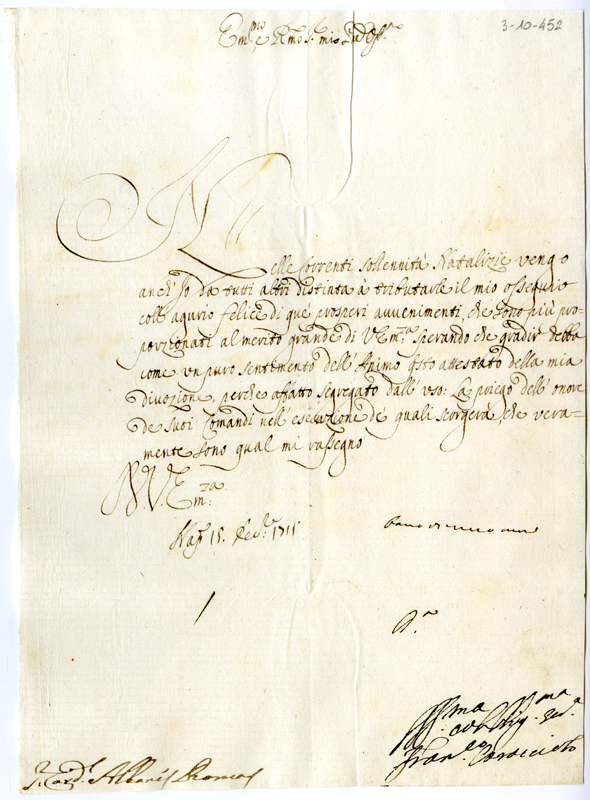 3-10-452
Em.mo e Rmo S. mio Pad.
Nelle correnti sollennità Natalizie vengo
anch' Io da tutti altri distinta à tributarle il mio ossequio
coll' agurio felice di que' prosperi avvenimenti, che sono più pro-
porzionati al merito grande di V. Em.za sperando che gradir debba
come un puro sentimento dell' Animo q.sto attestato della mia
divozione, perche affatto segregato dall' uso: La priego dell' onore
de suoi Comandi nell' esecuzione de quali scorgerà, che vera-
mente sono qual mi rassegno
D. V. Em.za
Nap. 15. Dec.re 1711
S. Card. Albani Roma